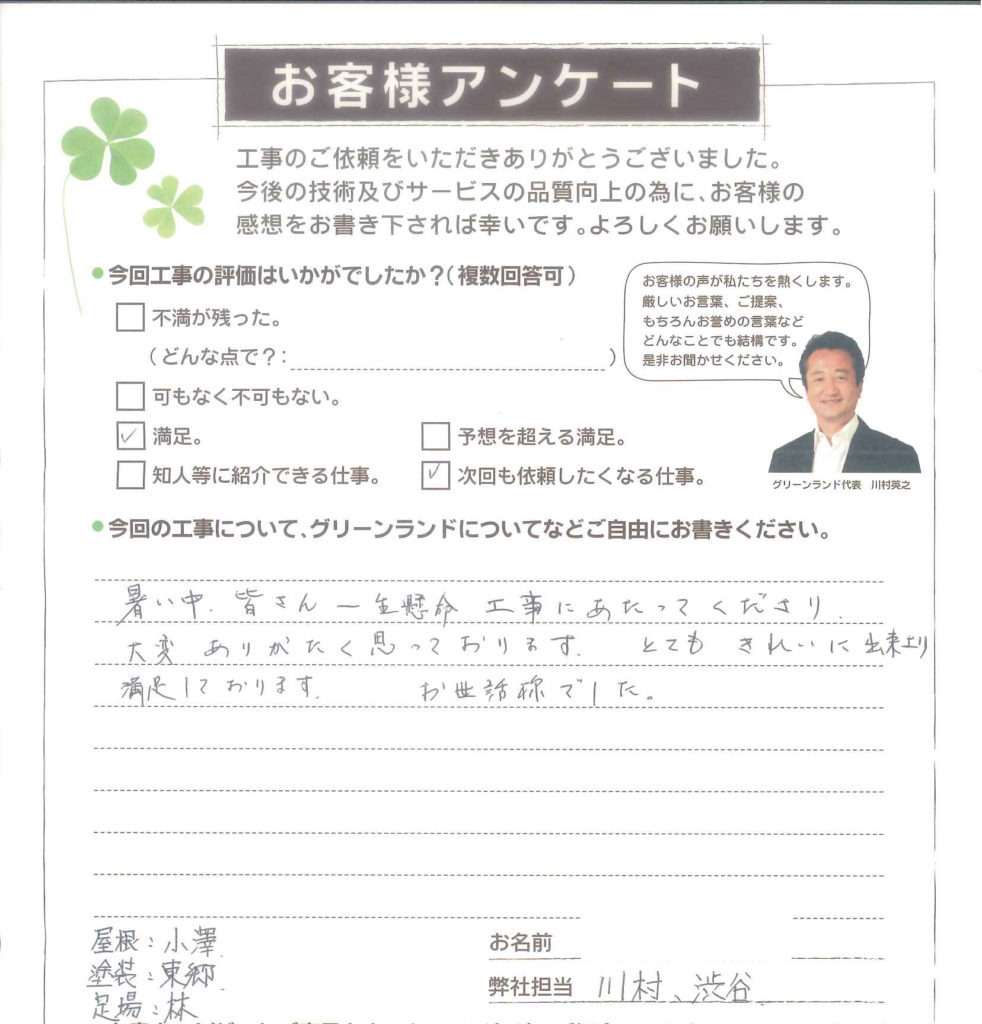 お客様アンケート
工事のご依頼をいただきありがとうございました。
今後の技術及びサービスの品質向上の為に、お客様の
感想をお書き下されば幸いです。よろしくお願いします。
●今回工事の評価はいかがでしたか？（複数回答可）
お客様の声が私たちを熱くします。
厳しいお言葉、ご提案、
もちろんお誉めの言葉など
どんなことでも結構です。
是非お聞かせください。
不満が残った。
（どんな点で？：　）
可もなく不可もない。
✓ 満足。　予想を超える満足。
知人等に紹介できる仕事。　✓ 次回も依頼したくなる仕事。
グリーンランド代表　川村英之
●今回の工事について、グリーンランドについてなどご自由にお書きください。
暑い中、皆さん一生懸命 工事にあたってくださり、
大変 ありがたく思っております。 とても きれいに出来上り
満足しております。 お世話様でした。
屋根：小澤
塗装：東郷
足場：林
お名前
弊社担当 川村、渋谷